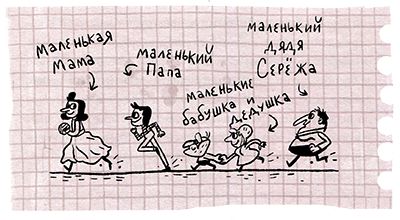 маленькая
мама
маленький
Папа
маленькие
бабушка и
дедушка
маленький
дядя
СЕРЁЖА